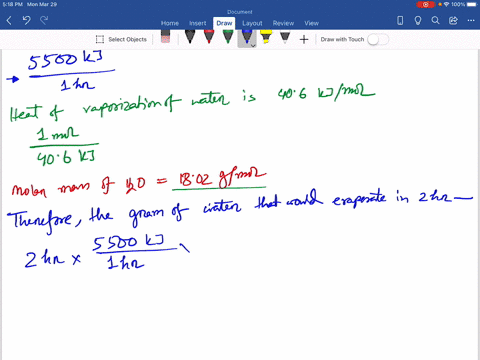 5:18 PM Mon Mar 29
100%
Document
Home Insert Draw Layout Review View
Select Objects
Draw with Touch
→ 5500 kJ / 1 hr
Heat of vaporization of water is 40.6 kJ/mol
1 mol / 40.6 kJ
Molar mass of H2O = 18.02 g/mol
Therefore, the gram of water that would evaporate in 2 hr —
2 hr × 5500 kJ / 1 hr